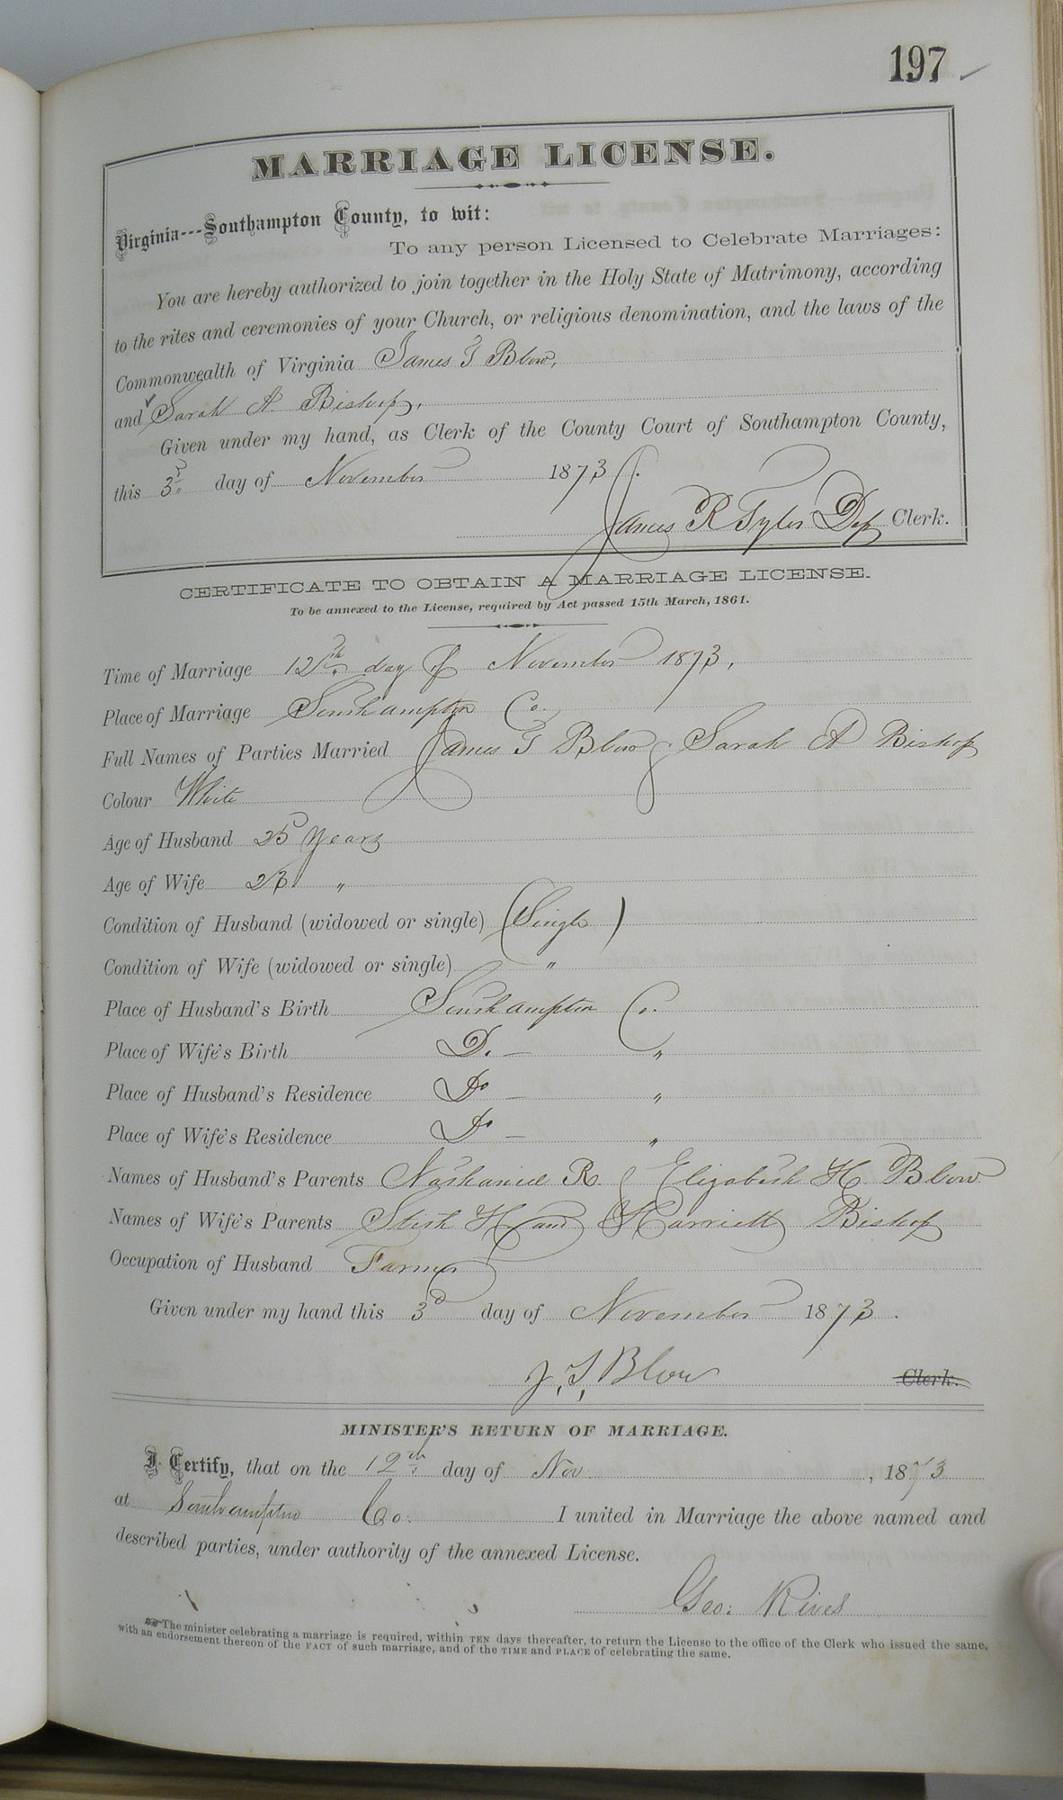 197
MARRIAGE LICENSE.
Virginia---Southampton County, to wit:
To any person Licensed to Celebrate Marriages:
You are hereby authorized to join together in the Holy State of Matrimony, according
to the rites and ceremonies of your Church, or religious denomination, and the laws of the
Commonwealth of Virginia James T Blow,
and Sarah A. Bishop,
Given under my hand, as Clerk of the County Court of Southampton County,
this 3d day of November 1873.
James R Tyler Dep Clerk.
CERTIFICATE TO OBTAIN A MARRIAGE LICENSE.
To be annexed to the License, required by Act passed 15th March, 1861.
Time of Marriage 12th day of November 1873,
Place of Marriage Southampton Co.
Full Names of Parties Married James T Blow & Sarah A Bishop
Colour White
Age of Husband 25 Years
Age of Wife "
Condition of Husband (widowed or single) (Single)
Condition of Wife (widowed or single) "
Place of Husband's Birth Southampton Co.
Place of Wife's Birth Do — "
Place of Husband's Residence Do — "
Place of Wife's Residence Do — "
Names of Husband's Parents Nathaniel R. & Elizabeth H. Blow
Names of Wife's Parents H and Harriett Bishop
Occupation of Husband Farmer
Given under my hand this 3d day of November 1873.
J. T. Blow Clerk.
MINISTER'S RETURN OF MARRIAGE.
I Certify, that on the 12th day of Nov , 1873
at Southampton Co. I united in Marriage the above named and
described parties, under authority of the annexed License.
Geo: Rives
The minister celebrating a marriage is required, within TEN days thereafter, to return the License to the office of the Clerk who issued the same,
with an endorsement thereon of the FACT of such marriage, and of the TIME and PLACE of celebrating the same.